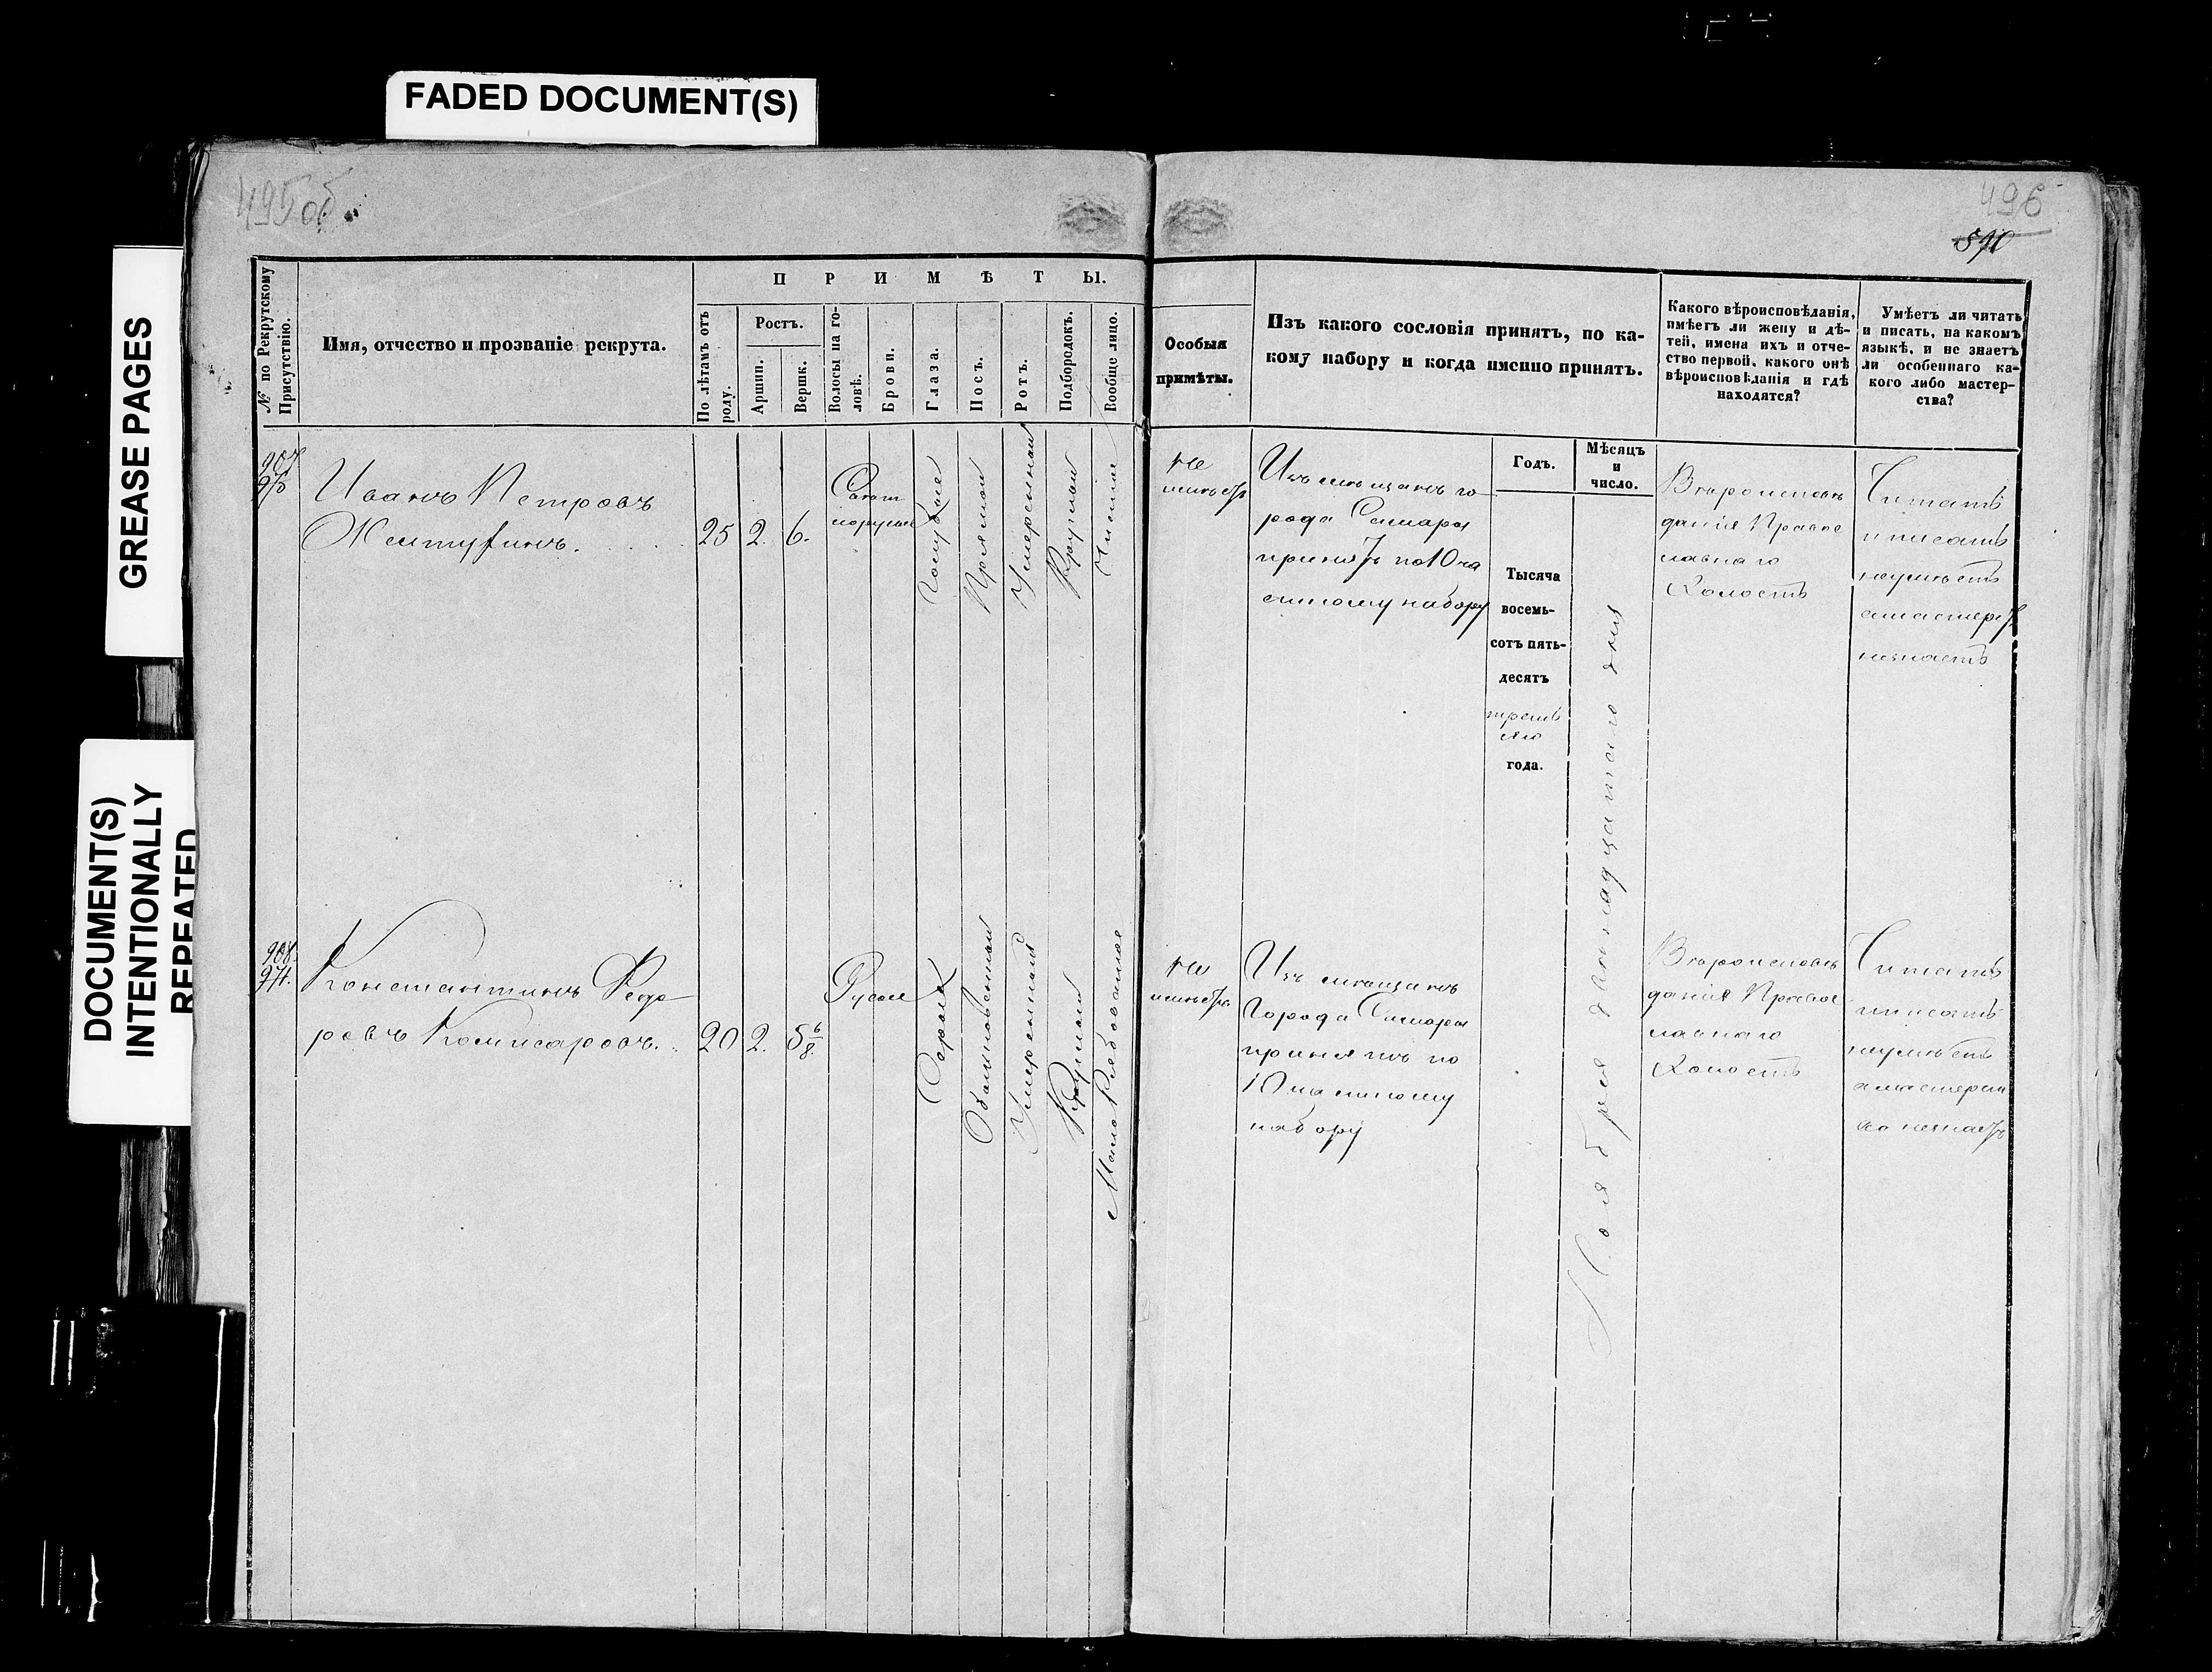 FADED DOCUMENT(S)
GREASE PAGES
DOCUMENT(S)
INTENTIONALLY
REPEATED
495об.
496
№ по Рекрутскому
Присутствію.
Имя, отчество и прозваніе рекрута.
ПРИМѢТЫ.
По лѣтамъ отъ
роду.
Ростъ.
Аршин.
Вершк.
Волосы на го-
ловѣ.
Брови.
Глаза.
Носъ.
Ротъ.
Подбородокъ.
Вообще лицо.
Особыя
примѣты.
Изъ какого сословія принятъ, по ка-
кому набору и когда именно принятъ.
Какого вѣроисповѣданія,
имѣетъ ли жену и дѣ-
тей, имена ихъ и отче-
ство первой, какого онѣ
вѣроисповѣданія и гдѣ
находятся?
Умѣетъ ли читать
и писать, на какомъ
языкѣ, и не знаетъ
ли особеннаго ка-
кого либо мастер-
ства?
Годъ.
Мѣсяцъ
и
число.
907
Иванъ Петровъ
25 2. 6.
Голубые
Прямой
Умеренной
Круглой
Чистое
не
имѣетъ
Изъ мещанъ го
рода Самары
принятъ по 10 ча
стному набору
Тысяча
восемь-
сотъ пять-
десятъ
треть
яго
года.
Ноября двенадцатаго дня
Вѣроисповѣ
данія Правос
лавнаго
Холостъ
Читать
и писать
неумѣетъ
амастерст.
незнаетъ
908.
974.
Константинъ Федо
ровъ Комисаровъ.
20 2. 5 6/8.
Русые
Серые
Обыкновенной
Умеренной
Круглой
Мало Рябоватое
не
имѣетъ
Изъ мещанъ
Города Самары
принятъ по
10 частному
набору
Вѣроисповѣ
данія Правос
лавнаго
Холостъ
Читать
писать
неумѣетъ
а мастерст
ва незнаетъ